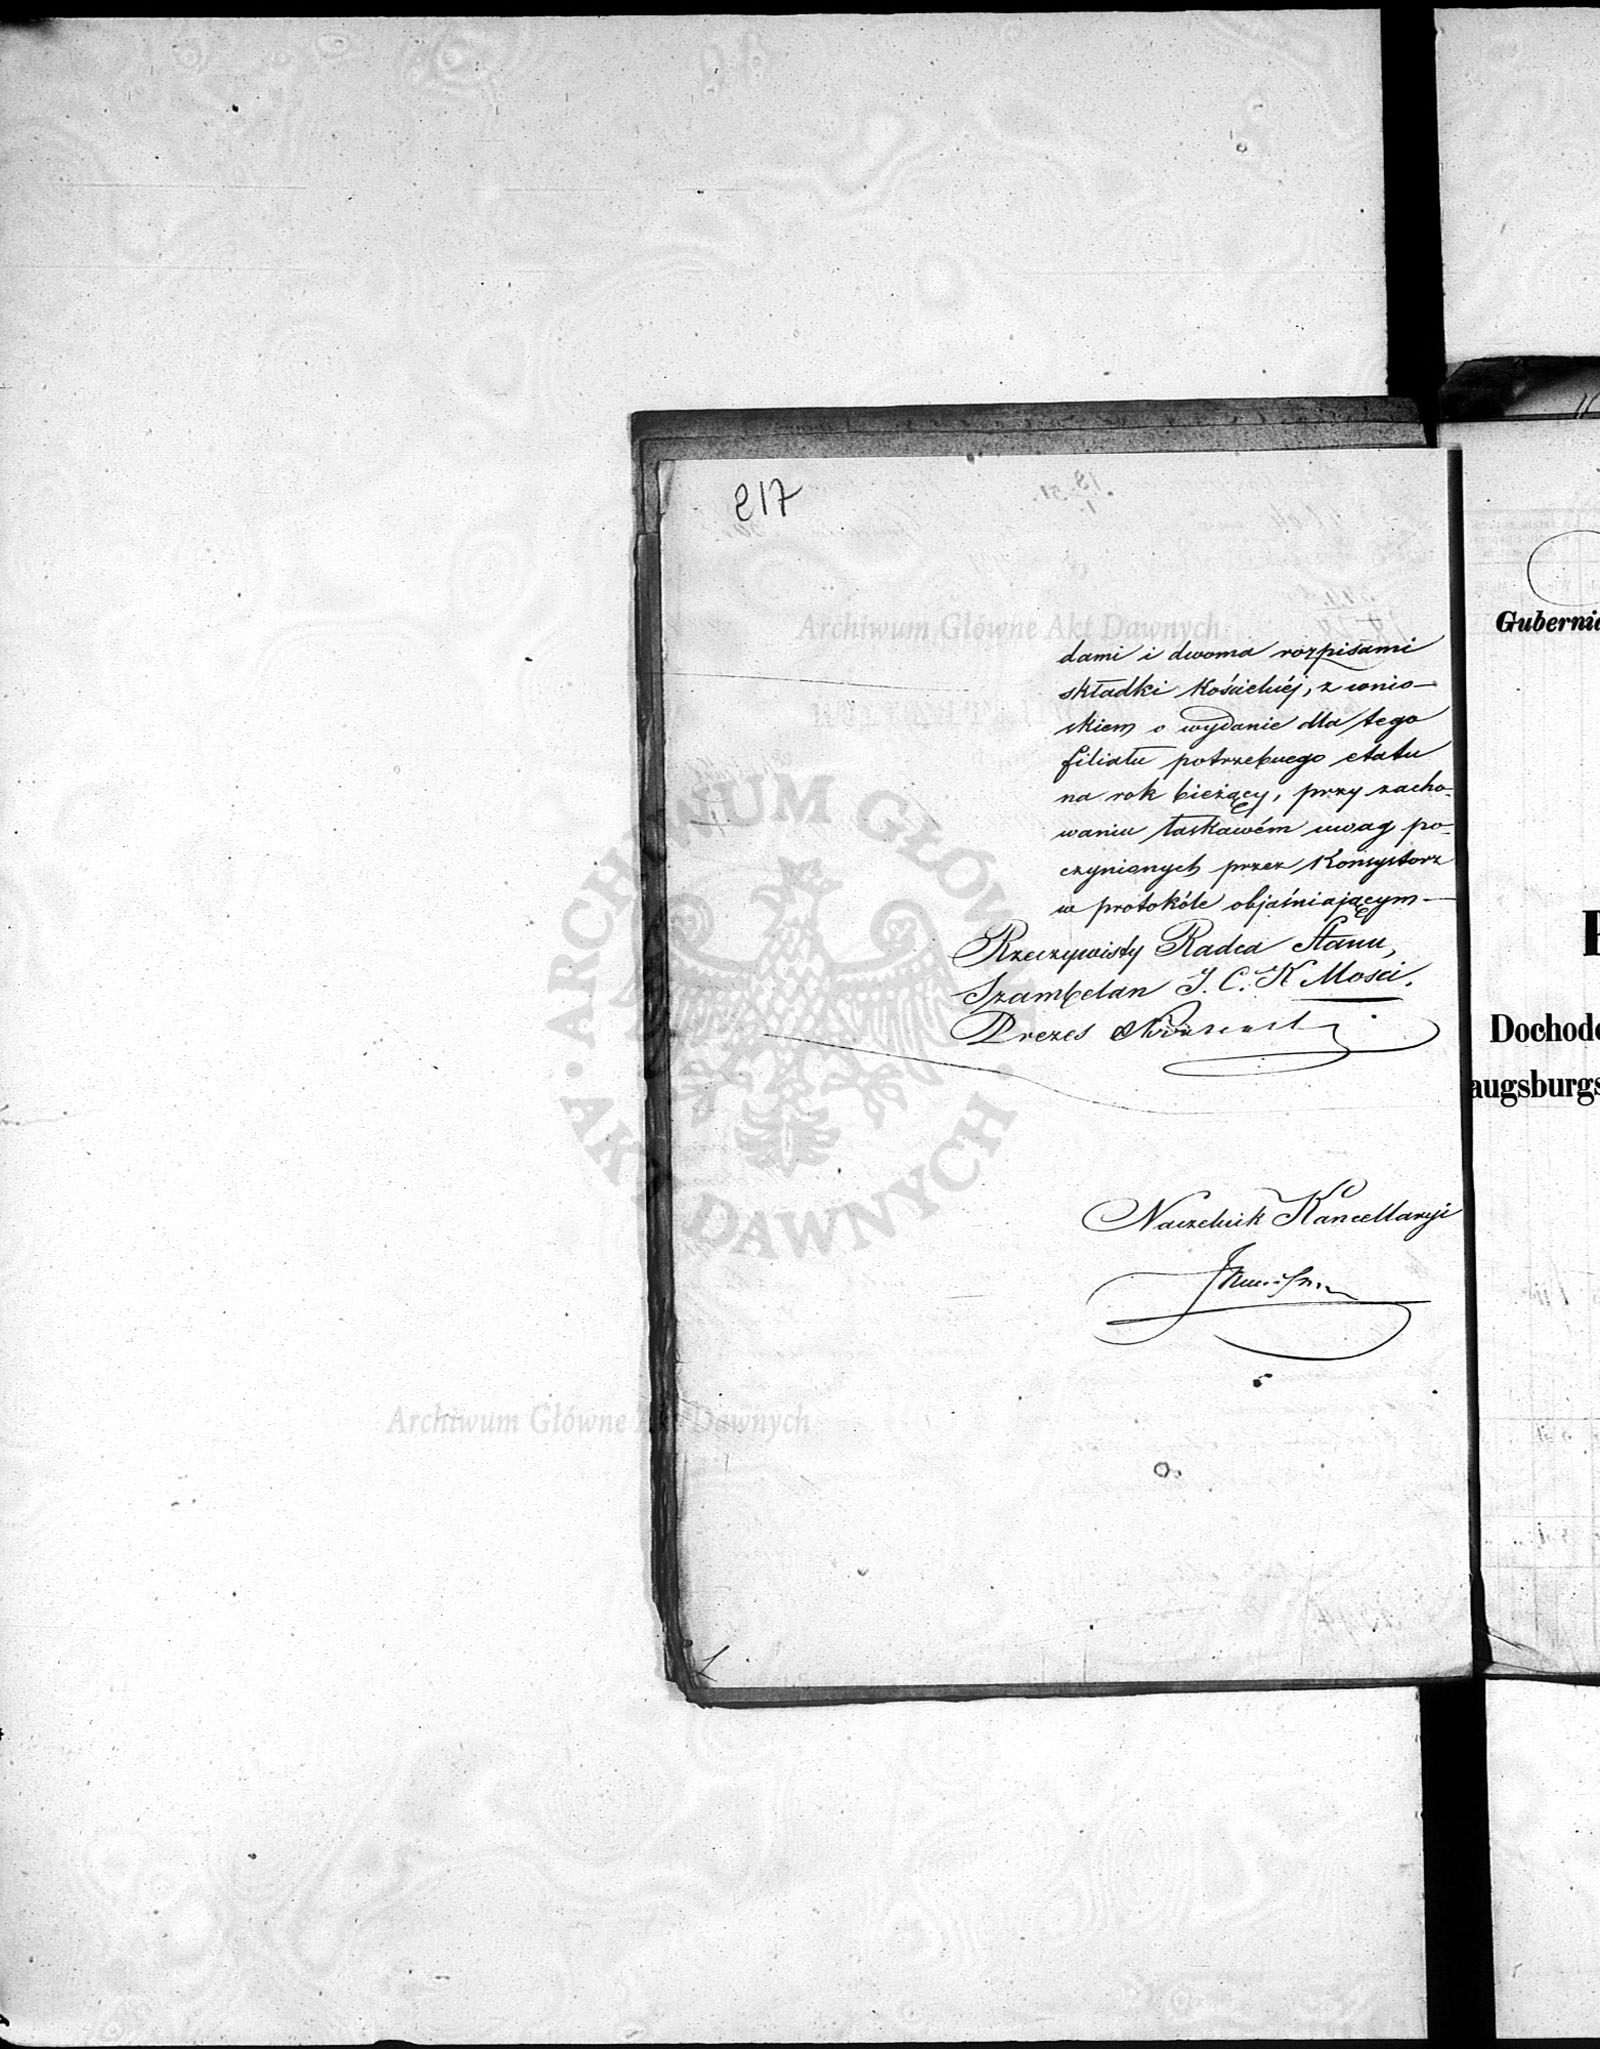 217
dami i dwoma rozpisami
składki Kościelnéj, z wnio-
skiem o wydanie dla tego
filiału potrzebnego etatu
na rok bieżący, przy zacho-
waniu łaskawém uwag po-
czynionych przez Konsystorz
w protokóle objaśniającym—
Rzeczywisty Radca Stanu,
Szambelan J. C. K Mości,
Prezes
Naczelnik Kancellaryi
Guberni
Dochod
augsburgs
Archiwum Główne Akt Dawnych
ARCHIWUM GŁÓWNE AKT DAWNYCH
Archiwum Główne Akt Dawnych